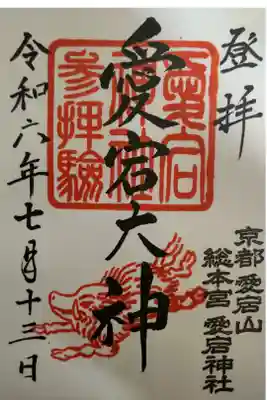 登拝
愛宕大神
愛宕神社参拝驗
令和六年七月十三日
京都 愛宕山
総本宮 愛宕神社